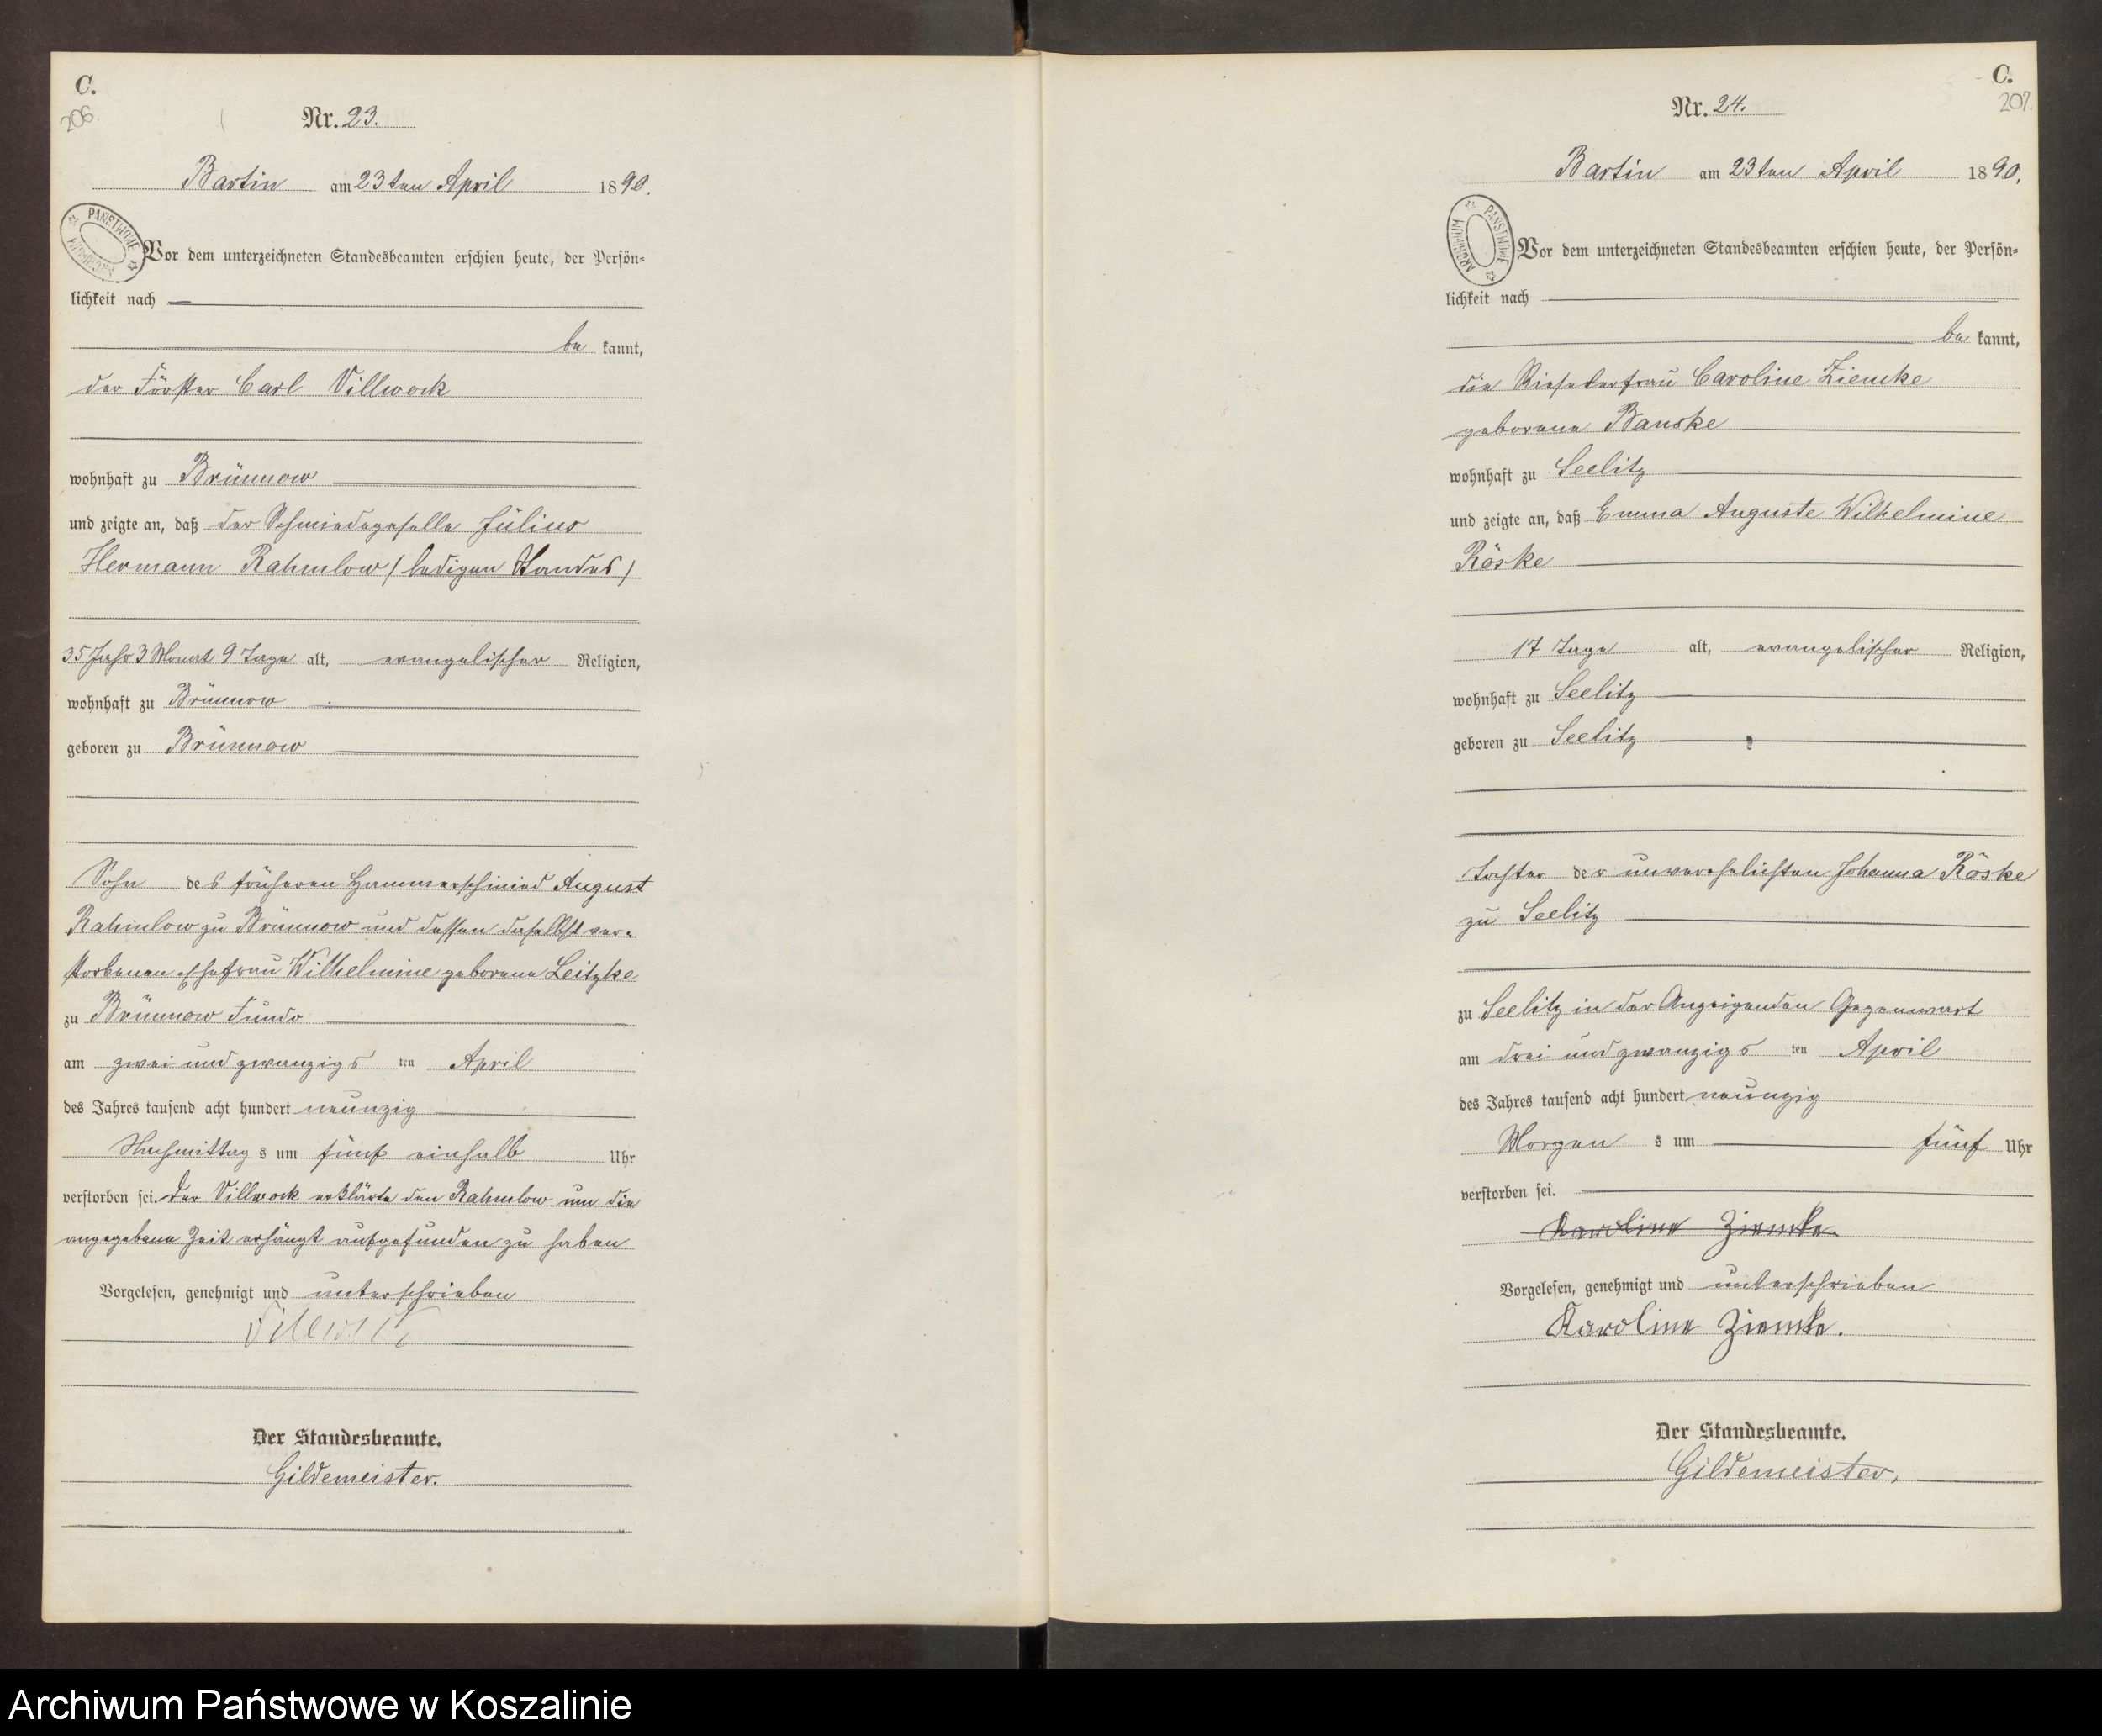 C.
206.
Nr. 23.
Bartin am 23ten April 1890.
PAŃSTWOWE ARCHIWUM
Vor dem unterzeichneten Standesbeamten erschien heute, der Persön=
lichkeit nach
be kannt,
der Förster Carl Villwock
wohnhaft zu Brünnow
und zeigte an, daß der Schmiedegeselle Julius
Hermann Rahmlow (ledigen Standes)
35 Jahr 3 Monat 9 Tage alt, evangelischer Religion,
wohnhaft zu Brünnow
geboren zu Brünnow
Sohn des früheren Hammerschmied August
Rahmlow zu Brünnow und dessen daselbst ver=
storbenen Ehefrau Wilhelmine geborene Leitzke
zu Brünnow
am zwei und zwanzigsten April
des Jahres tausend acht hundert neunzig
Nachmittags um fünf einhalb Uhr
verstorben sei. Der Villwock erklärte den Rahmlow um die
angegebene Zeit erhängt aufgefunden zu haben
Vorgelesen, genehmigt und unterschrieben
Villwock
Der Standesbeamte.
Gildemeister.
C.
207.
Nr. 24.
Bartin am 23ten April 1890.
PAŃSTWOWE ARCHIWUM
Vor dem unterzeichneten Standesbeamten erschien heute, der Persön=
lichkeit nach
be kannt,
die Caroline Ziemke
geborene Banske
wohnhaft zu Seelitz
und zeigte an, daß Emma Auguste Wilhelmine
Röske
17 Tage alt, evangelischer Religion,
wohnhaft zu Seelitz
geboren zu Seelitz
Tochter der unverehelichten Johanna Röske
zu Seelitz
zu Seelitz in der Anzeigenden Gegenwart
am drei und zwanzigsten April
des Jahres tausend acht hundert neunzig
Morgens um fünf Uhr
verstorben sei.
Karoline Ziemke.
Vorgelesen, genehmigt und unterschrieben
Karoline Ziemke.
Der Standesbeamte.
Gildemeister.
Archiwum Państwowe w Koszalinie